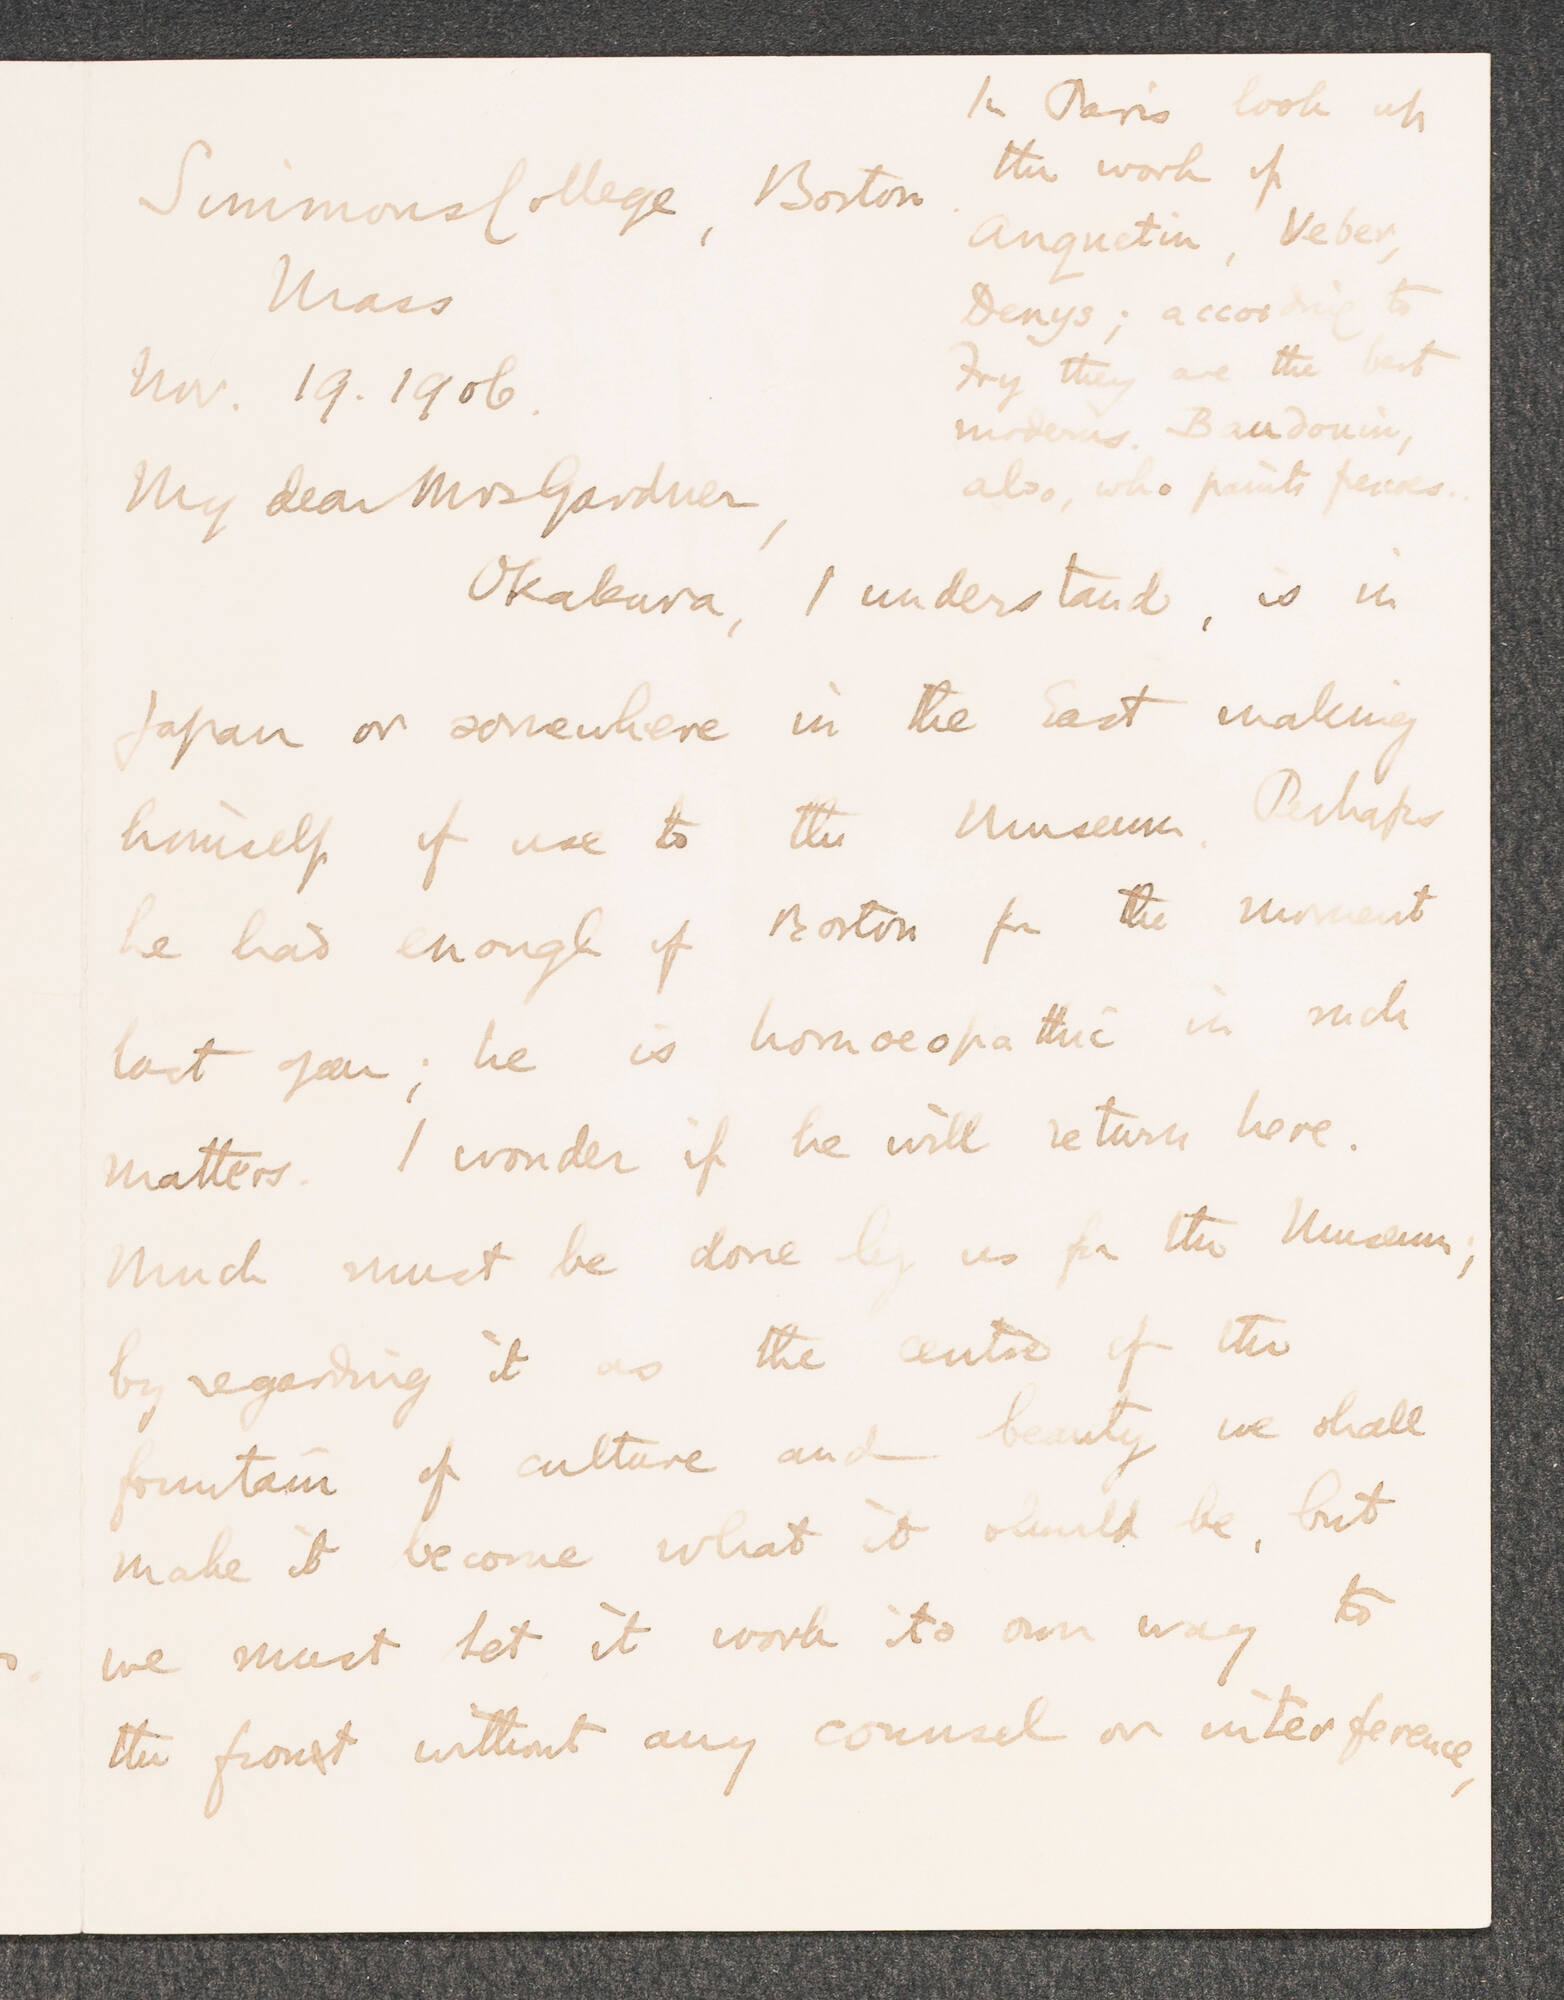 Simmons College, Boston
Mass
Nov. 19. 1906.
My dear Mrs Gardner,
In Paris look up
the work of
Anquetin, Veber,
Denys; according to
Fry they are the best
moderns. Baudouin,
also, who paints
Okakura, I understand, is in
Japan or somewhere in the East making
himself of use to the Museum. Perhaps
he had enough of Boston for the moment
last year; he is homoeopathic in such
matters. I wonder if he will return here.
Much must be done by us for the Museum;
by regarding it as the centre of the
fountain of culture and beauty we shall
make it become what it should be, but
we must let it work its own way to
the front without any counsel or interference,